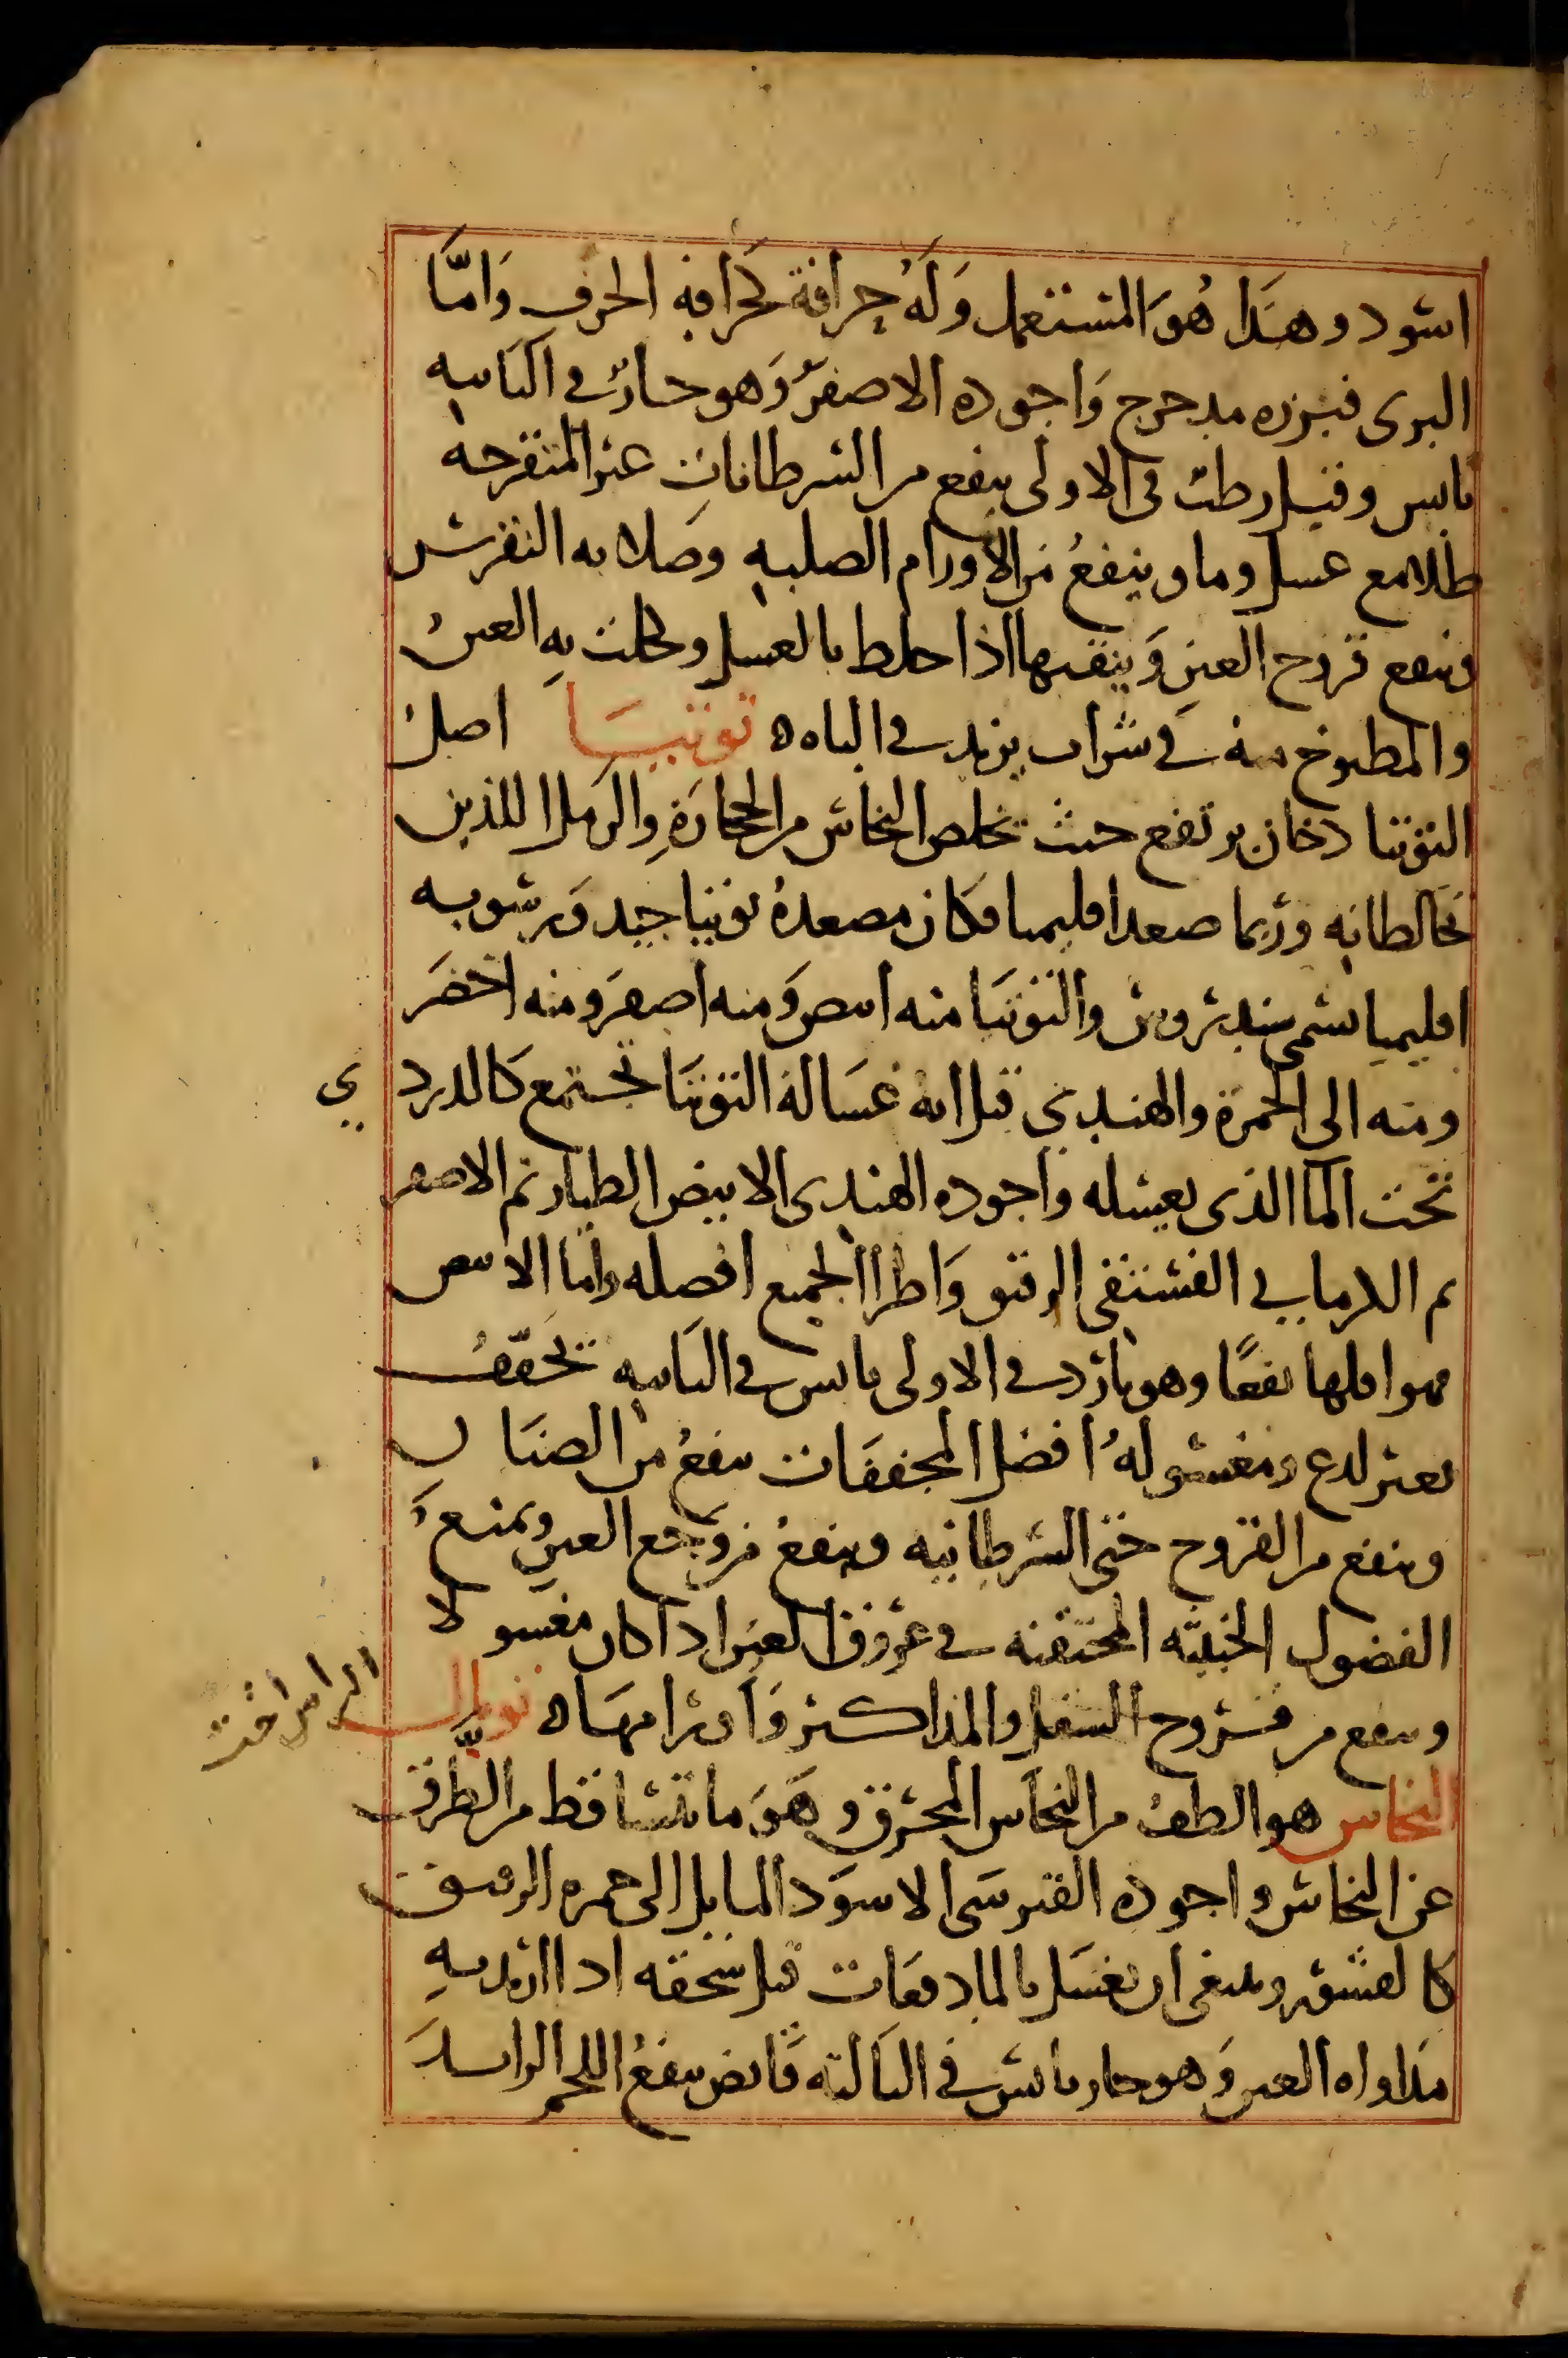 اسود وهذا هو المستعمل وله حرافة كحرافة الحرف وامّا
البرى فبزره مدحرج واجوده الاصفر وهو حار فى الثانيه
يابس وقيل رطب فى الاولى ينفع من السرطانات غير المتقرحه
طلا مع عسل وما وينفع من الاورام الصلبه وصلابه النقرس
وينفع قروح العين وينقيها اذا خلط بالعسل وكحلت به العين
والمطبوخ منه فى شراب يزيد فى الباه ه توتيا اصل
التوتيا دخان يرتفع حيث تخلص النحاس من الحجارة والرمل اللذين
تخالطانه وربما صعد اقليميا فكان مصعده توتيا جيد ورسوبه
اقليميا تسمى سنديرون والتوتيا منه ابيض ومنه اصفر ومنه اخضر
ومنه الى الحمرة والهندي قيل انه غسالة التوتيا تجتمع كالدردي
تحت الما الذى يغسله واجوده الهندى الابيض الطيار ثم الاصفر
ثم الكرمانى الفستقى الرقيق واطرا الجميع افضله واما الابيض
فهو اقلها نفعًا وهو بارد فى الاولى يابس فى الثانيه تجفّف
بغير لدع ومغسوله افضل المجففات ينفع من الصنان
وينفع من القروح حتى السرطانيه وينفع من وجع العين ويمنع
الفضول الخبيثه المحتقنه فى عروق العين اذا كان مغسولا
وينفع من قروح السفل والمذاكير واورامها ه توبال
الراسخت
النحاس هو الطف من النحاس المحرق وهو ما تتساقط من الطرق
عن النحاس واجوده القبرسى الاسود المايل الى حمره الرقيق
كالقشور وينبغى ان يغسل بالما دفعات قبل سحقه اذا اريد به
مداواه العين وهو حار يابس فى الثالثه قابض ينفع اللحم الزايد